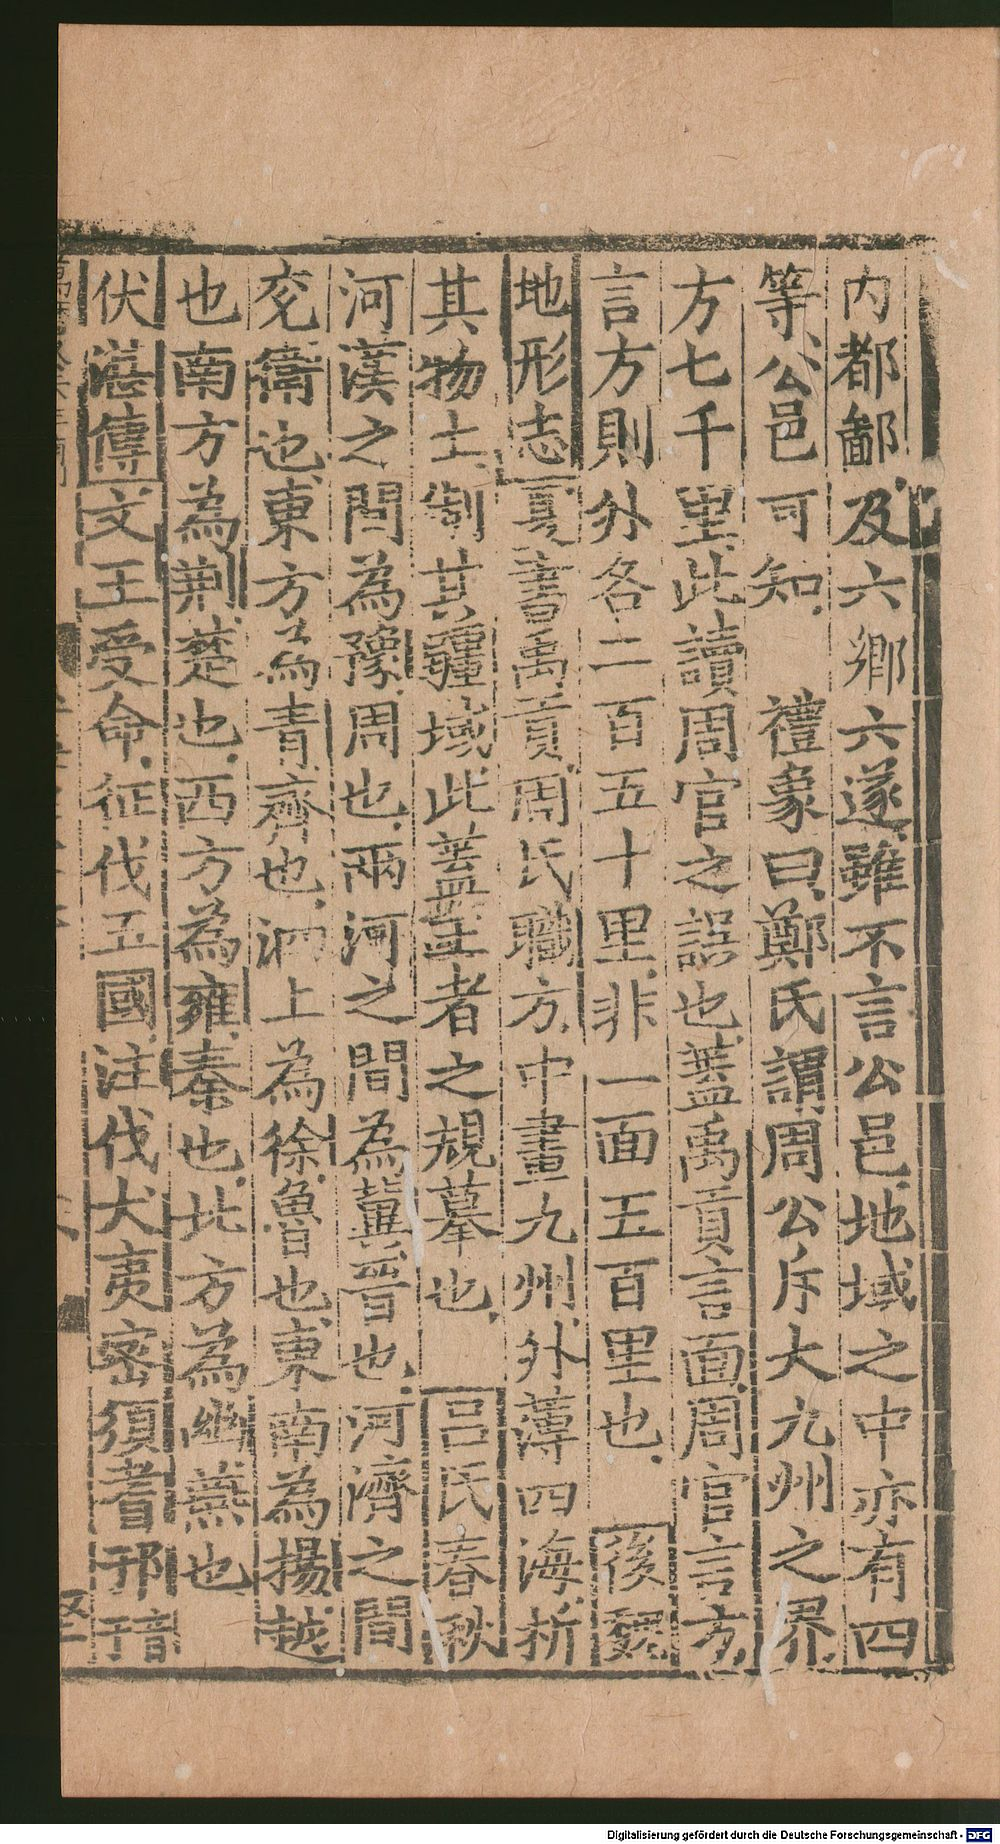 内都鄙及六鄉六遂雖不言公邑地域之中亦有四
等公邑可知　禮象曰鄭氏謂周公斥大九州之界
方七千里此讀周官之誤也蓋禹貢言面周官言方
言方則外各二百五十里非一面五百里也　後魏
地形志夏書禹貢周氏職方中畫九州外薄四海析
其物土制其疆域此蓋王者之規摹也　呂氏春秋
河漢之間為豫周也兩河之間為冀晉也河濟之間
兖衞也東方為青齊也泗上為徐魯也東南為揚越
也南方為荆楚也西方為雍秦也北方為幽燕也
伏湛傳文王受命征伐五國注伐犬夷密須耆邘
Digitalisierung gefördert durch die Deutsche Forschungsgemeinschaft - DFG